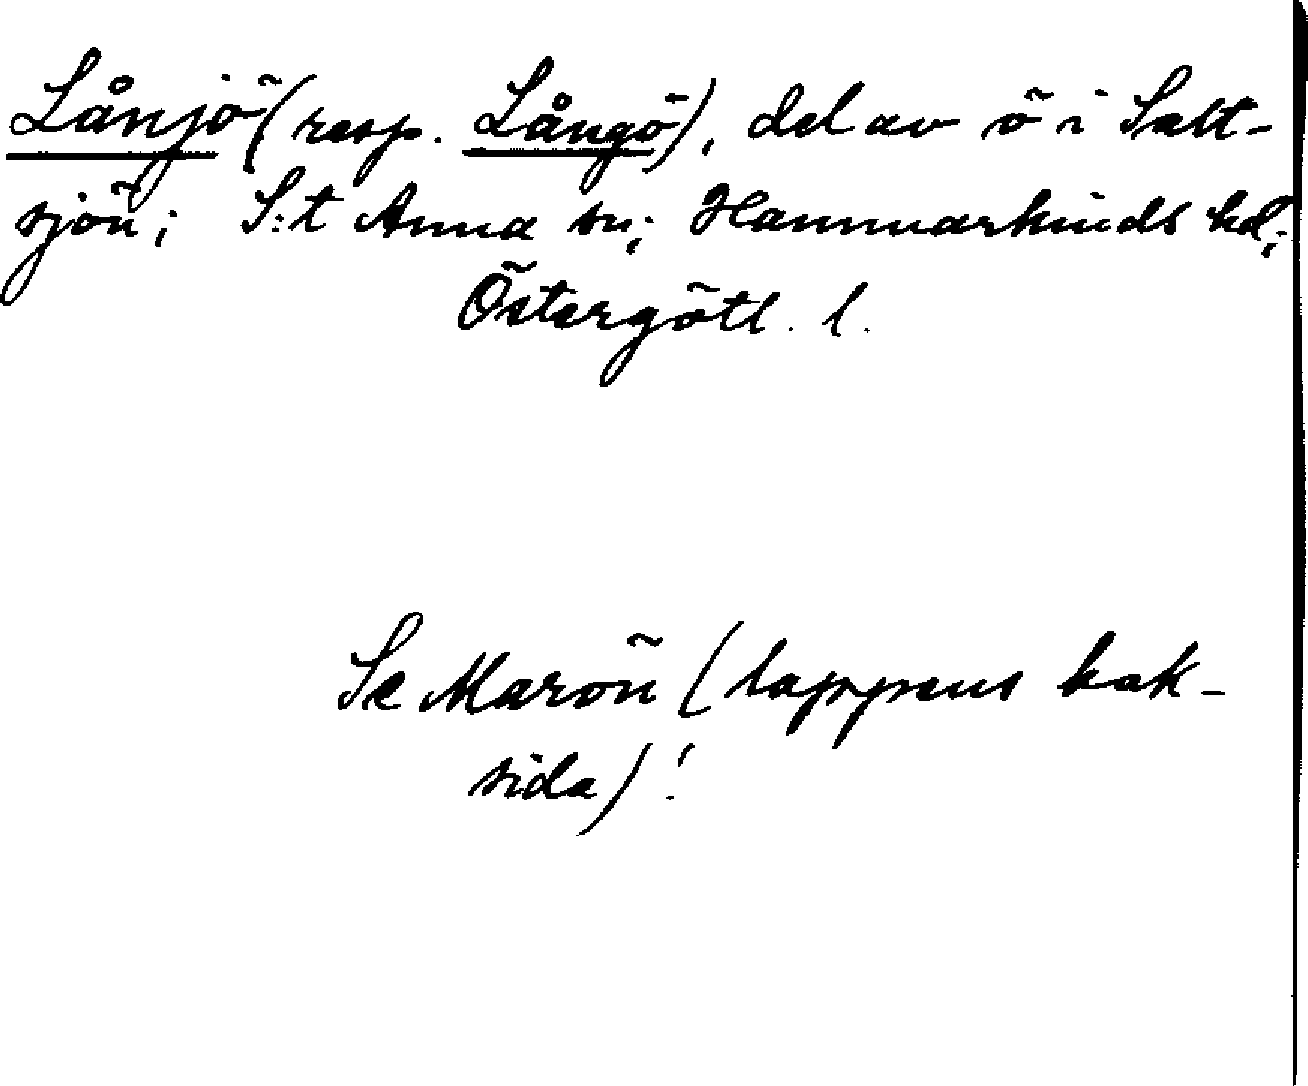 Lånjö (resp. Långö), del av ö i Salt-
sjön; S:t Anna sn; Hammarkinds hd;
Östergötl. l.
Se Marön (lappens bak-
sida)!